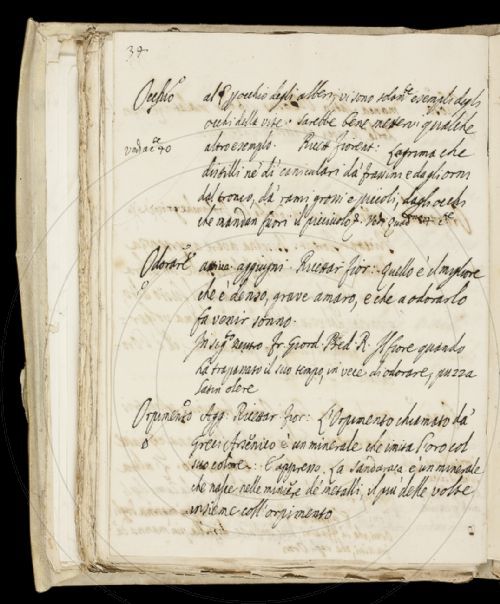 39
Occhio al § occhio degli alberi, vi sono solam.te esempli degli
occhi della vite. Sarebbe bene mettervi qualche
vad ac 40 altro esemplo. Ricet. fiorent: Lagrima che
distilli ne dì caniculari da frassini e dagli orni
dal tronco, da' rami grossi e piccioli, dagli occhi
che mandan fuori il picciuolo
Odorare attivo aggiugni Ricettar fior: quello è il migliore
che è denso, grave amaro, e che a odorarlo
fa venir sonno.
In sig. neutro fr. Giord. Pred. R. Il fiore quando
ha trapassato il suo tempo, in vece di odorare, puzza
Latin olere
Orpimento Agg. Ricettar fior: L'Orpimento chiamato da'
Greci Arsenico è un minerale che imita l'oro col
suo colore. E appresso. La Sandaraca è un minerale
che nasce nelle miniere de' metalli, il più delle volte
insieme coll'orpimento